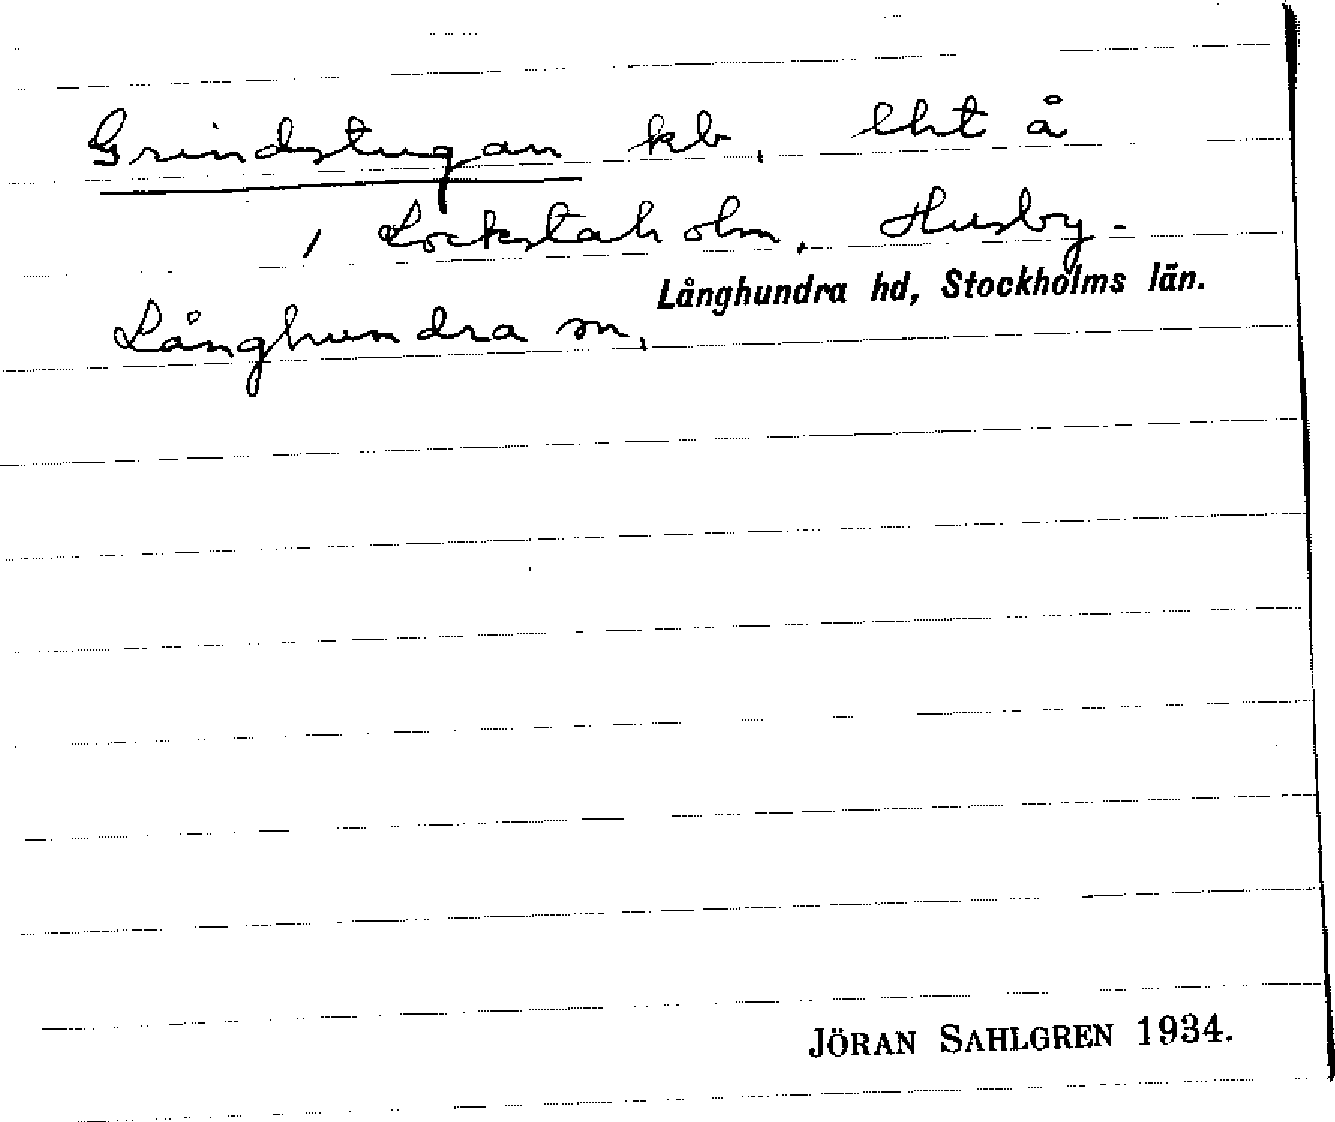 Grindstugan kb, lht å
1 Lockstaholm, Husby-
Långhundra hd, Stockholms län.
Långhundra sn,
JÖRAN SAHLGREN 1934.